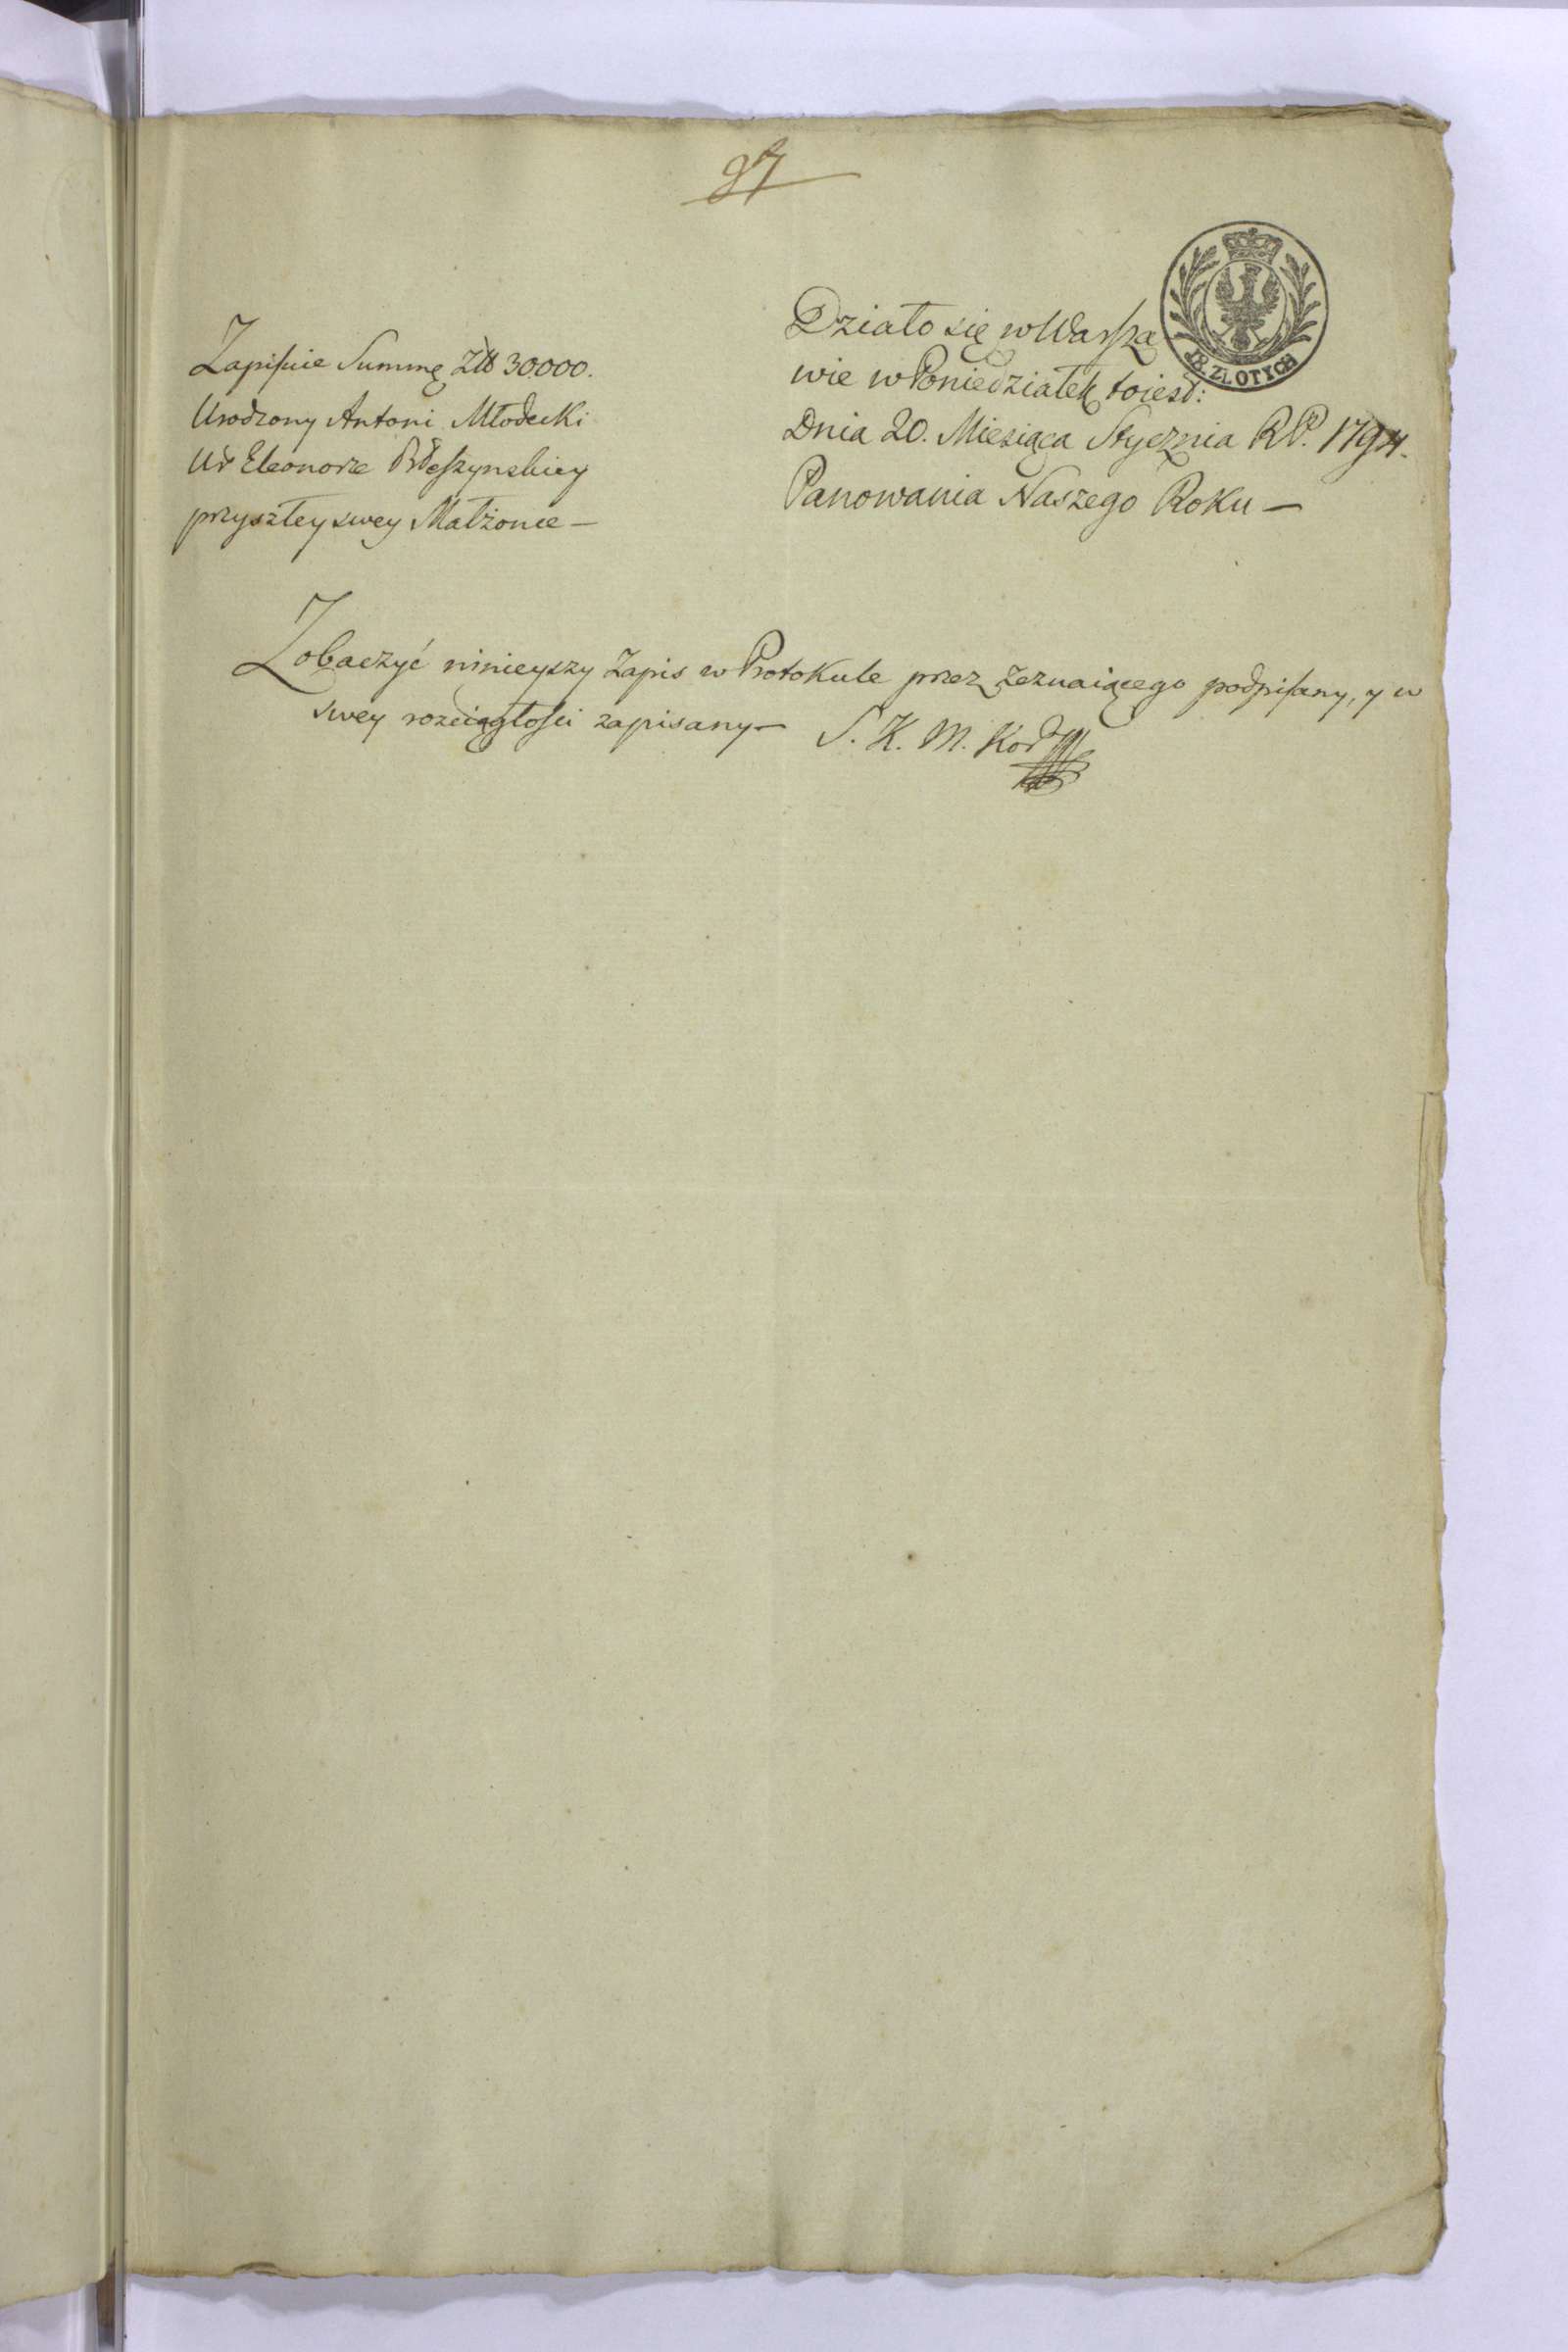 97
Zapisuie Summę Złł 30000.
Urodzony Antoni Młodecki
Ur Eleonorze Błeszynskiey
przyszłey swey Małżonce —
Działo się w Warsza
wie w Poniedziałek to iest:
Dnia 20. Miesiąca Stycznia RP. 1794.
Panowania Naszego Roku —
18. ZŁOTYCH
Zobaczyć ninieyszy Zapis w Protokule przez Zeznaiącego podpisany, y w
swey rozciągłości zapisany — S. K. M. Kod